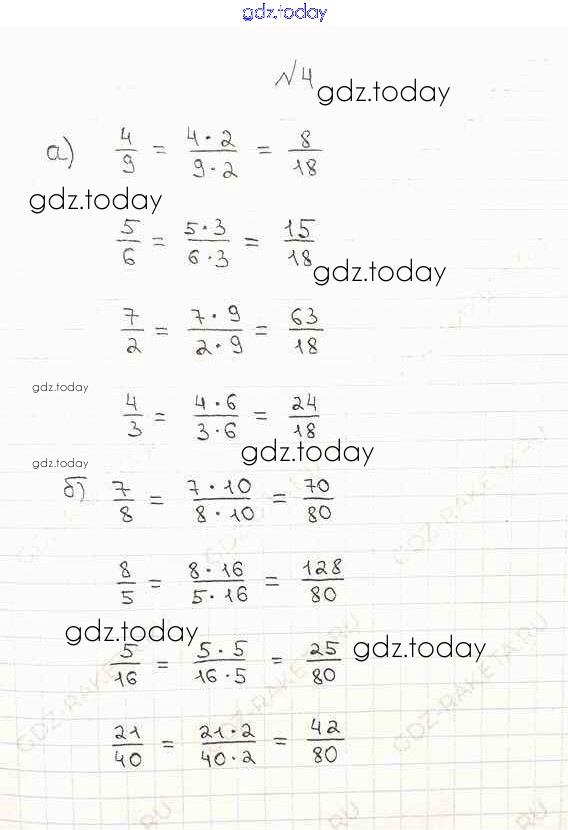 gdz.today
№4
gdz.today
а) 4/9 = 4·2/9·2 = 8/18
gdz.today
5/6 = 5·3/6·3 = 15/18
gdz.today
7/2 = 7·9/2·9 = 63/18
gdz.today
4/3 = 4·6/3·6 = 24/18
gdz.today
gdz.today
б) 7/8 = 7·10/8·10 = 70/80
GDZ-RAKETA.RU
8/5 = 8·16/5·16 = 128/80
gdz.today
gdz.today
5/16 = 5·5/16·5 = 25/80
GDZ-RAKETA.RU
GDZ-RAKETA.RU
21/40 = 21·2/40·2 = 42/80